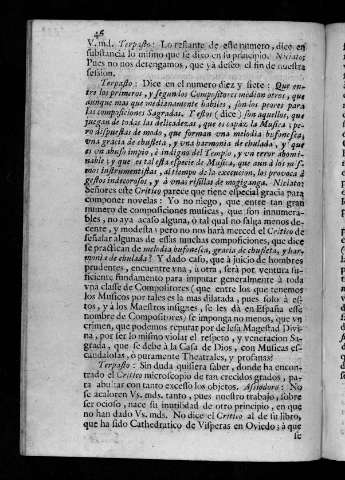 46
V. md. Terpasto: Lo restante de este numero, dice en
substancia lo mismo que se dixo en la principio. Niciato:
Pues no nos detengamos, que yà deseo el fin de nuestra
session.
Terpasto: Dice en el numero diez y siete: Que en-
tre los primeros, y segun los Compositores median otros, que
aunque mas que medianamente habiles, son los peores para
las composiciones Sagradas. Y estos (dice) son aquellos, que
juegan de todas las delicadezas, que es capàz la Musica; pe-
ro dispuestas de modo, que forman vna melodia bufonesca,
vna gracia de chusleta, y vna harmonia de chulada, y que
es vn abuso impio, è indigno del Templo, y vn error abomi-
nable; y que es tal esta especie de Musica, que aun à los mis-
mos instrumentistas, al tiempo de la execucion, los provoca à
gestos indecorosos, y à vnas risillas de mogiganga. Niciato:
Señores este Critico parece que tiene especial gracia para
componer novelas: Yo no niego, que entre tan gran
numero de composiciones musicas, que son innumera-
bles, no aya acaso alguna, ò tal qual no salga menos de-
cente, y modesta; pero no nos harà merced el Critico de
señalar algunas de estas muchas composiciones, que dice
se practican de melodia bufonesca, gracia de chusleta, y har-
monia de chulada? Y dado caso, que à juicio de hombres
prudentes, encuentre vna, ù otra, serà por ventura su-
ficiente fundamento para imputar generalmente à toda
vna classe de Compositores (que entre los que tenemos
los Musicos por tales es la mas dilatada, pues solo à es-
tos, y à los Maestros insignes, se les dà en España esse
nombre de Compositores) se imponga no menos, que vn
crimen, que podemos reputar por de lesa Magestad Divi-
na, por ser lo mismo violar el respeto, y veneracion Sa-
grada, que se debe à la Casa de Dios, con Musicas es-
candalosas, ò puramente Theatrales, y profanas?
Terpasto: Sin duda quisiera saber, donde ha encon-
trado el Critico microscopio de tan crecidos grados, pa-
ra abultar con tanto excesso los objetos. Assiodoro: No
se acaloren Vs. mds. tanto, pues nuestro trabajo, sobre
ser ocioso, nace su inutilidad de otro principio, en que
no han dado Vs. mds. No dice el Critico al de su libro,
que ha sido Cathedratico de Visperas en Oviedo; à que
se